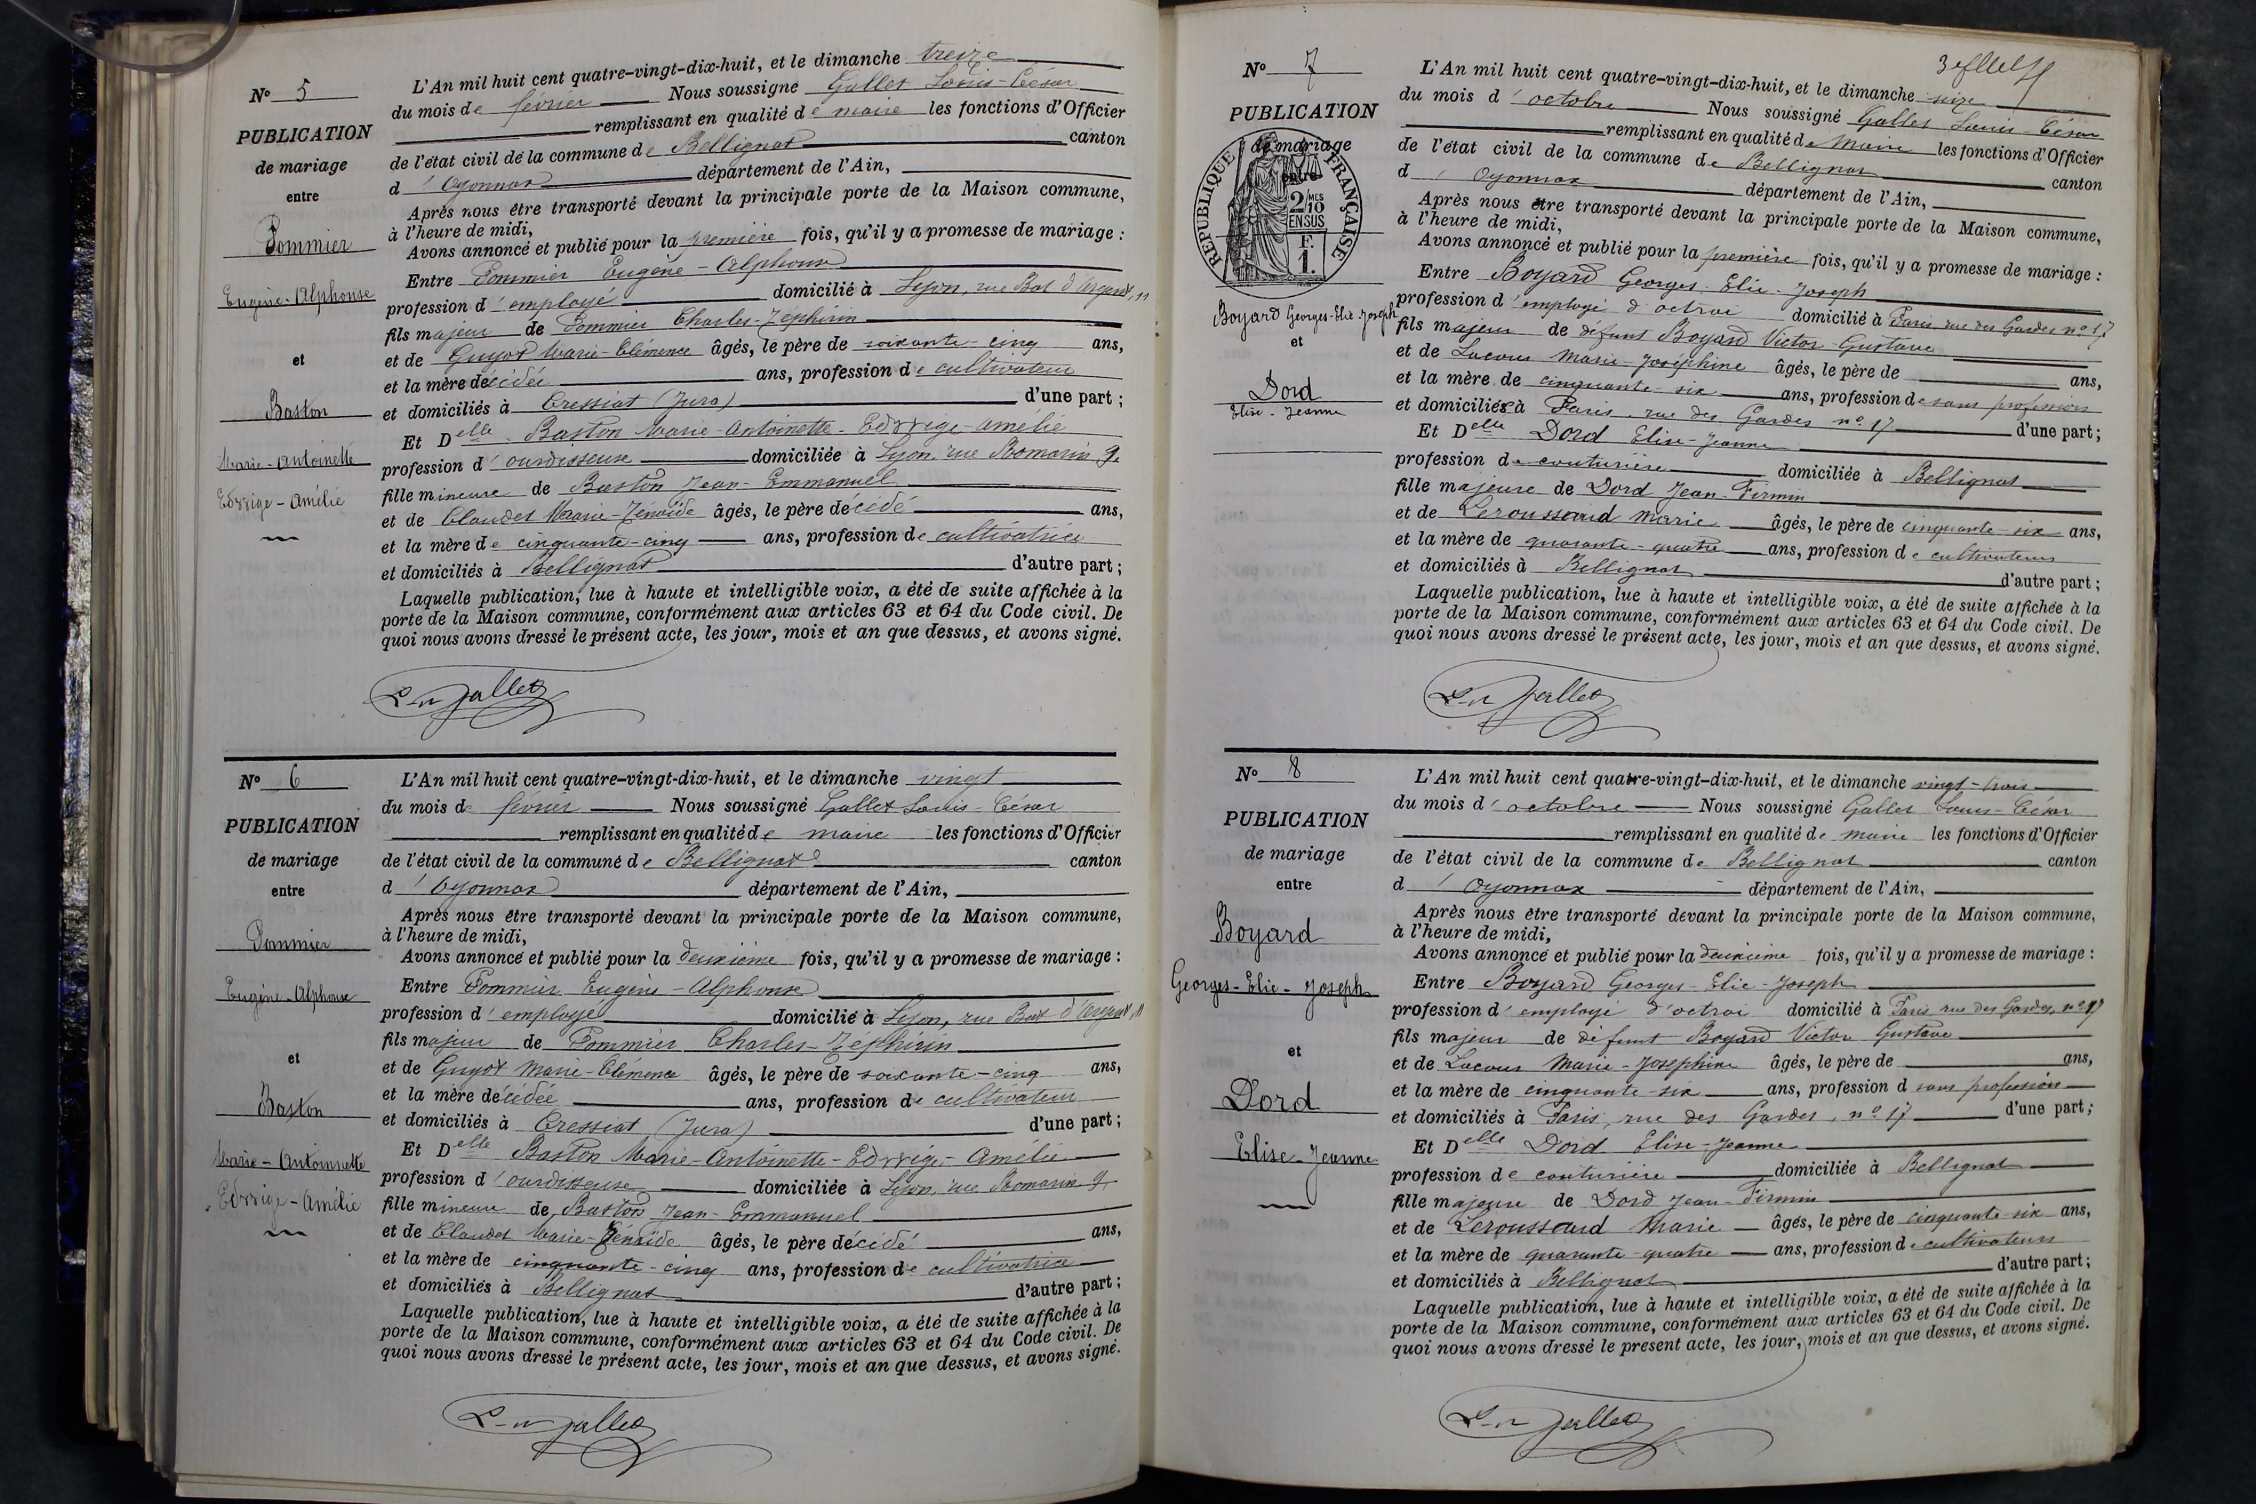 N° 5
PUBLICATION
de mariage
entre
Pommier
Eugène-Alphonse
et
Baston
Marie-Antoinette
Edwige-Amélie
L'An mil huit cent quatre-vingt-dix-huit, et le dimanche treize
du mois de février Nous soussigné Gallet Louis-César
remplissant en qualité de maire les fonctions d'Officier
de l'état civil de la commune de Bellignat canton
d'Oyonnax département de l'Ain,
Après nous être transporté devant la principale porte de la Maison commune,
à l'heure de midi,
Avons annoncé et publié pour la première fois, qu'il y a promesse de mariage :
Entre Pommier Eugène-Alphonse
profession d'employé domicilié à Lyon, rue Bat d'Argent, 11
fils majeur de Pommier Charles-Zéphirin
et de Guyot Marie-Clémence âgés, le père de soixante-cinq ans,
et la mère décédée ans, profession de cultivateur
et domiciliés à Cressiat (Jura) d'une part ;
Et Delle Baston Marie-Antoinette-Edwige-Amélie
profession d'ourdisseuse domiciliée à Lyon, rue Romarin 9
fille mineure de Baston Jean-Emmanuel
et de Claudet Marie-Zénaïde âgés, le père décédé ans,
et la mère de cinquante-cinq ans, profession de cultivatrice
et domiciliés à Bellignat d'autre part ;
Laquelle publication, lue à haute et intelligible voix, a été de suite affichée à la
porte de la Maison commune, conformément aux articles 63 et 64 du Code civil. De
quoi nous avons dressé le présent acte, les jour, mois et an que dessus, et avons signé.
Gallet
N° 6
PUBLICATION
de mariage
entre
Pommier
Eugène-Alphonse
et
Baston
Marie-Antoinette
Edwige-Amélie
L'An mil huit cent quatre-vingt-dix-huit, et le dimanche vingt
du mois de février Nous soussigné Gallet Louis-César
remplissant en qualité de maire les fonctions d'Officier
de l'état civil de la commune de Bellignat canton
d'Oyonnax département de l'Ain,
Après nous être transporté devant la principale porte de la Maison commune,
à l'heure de midi,
Avons annoncé et publié pour la deuxième fois, qu'il y a promesse de mariage :
Entre Pommier Eugène-Alphonse
profession d'employé domicilié à Lyon, rue Bat d'Argent, 11
fils majeur de Pommier Charles-Zéphirin
et de Guyot Marie-Clémence âgés, le père de soixante-cinq ans,
et la mère décédée ans, profession de cultivateur
et domiciliés à Cressiat (Jura) d'une part ;
Et Delle Baston Marie-Antoinette-Edwige-Amélie
profession d'ourdisseuse domiciliée à Lyon, rue Romarin 9
fille mineure de Baston Jean-Emmanuel
et de Claudet Marie-Zénaïde âgés, le père décédé ans,
et la mère de cinquante-cinq ans, profession de cultivatrice
et domiciliés à Bellignat d'autre part ;
Laquelle publication, lue à haute et intelligible voix, a été de suite affichée à la
porte de la Maison commune, conformément aux articles 63 et 64 du Code civil. De
quoi nous avons dressé le présent acte, les jour, mois et an que dessus, et avons signé.
Gallet
N° 7
PUBLICATION
de mariage
entre
RÉPUBLIQUE FRANÇAISE
2 MES
10
EN SUS
F.
1.
Boyard Georges-Elie-Joseph
et
Dord
Elise-Jeanne
L'An mil huit cent quatre-vingt-dix-huit, et le dimanche seize
du mois d'octobre Nous soussigné Gallet Louis-César
remplissant en qualité de Maire les fonctions d'Officier
de l'état civil de la commune de Bellignat canton
d'Oyonnax département de l'Ain,
Après nous être transporté devant la principale porte de la Maison commune,
à l'heure de midi,
Avons annoncé et publié pour la première fois, qu'il y a promesse de mariage :
Entre Boyard Georges-Elie-Joseph
profession d'employé d'octroi domicilié à Paris rue des Gardes n° 17
fils majeur de défunt Boyard Victor-Gustave
et de Lacour Marie-Joséphine âgés, le père de ans,
et la mère de cinquante-six ans, profession de sans profession
et domiciliés à Paris, rue des Gardes n° 17 d'une part ;
Et Delle Dord Elise-Jeanne
profession de couturière domiciliée à Bellignat
fille majeure de Dord Jean-Firmin
et de Leroussaud Marie âgés, le père de cinquante-six ans,
et la mère de quarante-quatre ans, profession de cultivateurs
et domiciliés à Bellignat d'autre part ;
Laquelle publication, lue à haute et intelligible voix, a été de suite affichée à la
porte de la Maison commune, conformément aux articles 63 et 64 du Code civil. De
quoi nous avons dressé le présent acte, les jour, mois et an que dessus, et avons signé.
Gallet
N° 8
PUBLICATION
de mariage
entre
Boyard
Georges-Elie-Joseph
et
Dord
Elise-Jeanne
L'An mil huit cent quatre-vingt-dix-huit, et le dimanche vingt-trois
du mois d'octobre Nous soussigné Gallet Louis-César
remplissant en qualité de maire les fonctions d'Officier
de l'état civil de la commune de Bellignat canton
d'Oyonnax département de l'Ain,
Après nous être transporté devant la principale porte de la Maison commune,
à l'heure de midi,
Avons annoncé et publié pour la deuxième fois, qu'il y a promesse de mariage :
Entre Boyard Georges-Elie-Joseph
profession d'employé d'octroi domicilié à Paris rue des Gardes, n° 17
fils majeur de défunt Boyard Victor Gustave
et de Lacour Marie-Joséphine âgés, le père de ans,
et la mère de cinquante-six ans, profession d sans profession
et domiciliés à Paris, rue des Gardes, n° 17 d'une part ;
Et Delle Dord Elise-Jeanne
profession de couturière domiciliée à Bellignat
fille majeure de Dord Jean-Firmin
et de Leroussaud Marie âgés, le père de cinquante-six ans,
et la mère de quarante-quatre ans, profession de cultivateurs
et domiciliés à Bellignat d'autre part ;
Laquelle publication, lue à haute et intelligible voix, a été de suite affichée à la
porte de la Maison commune, conformément aux articles 63 et 64 du Code civil. De
quoi nous avons dressé le présent acte, les jour, mois et an que dessus, et avons signé.
Gallet